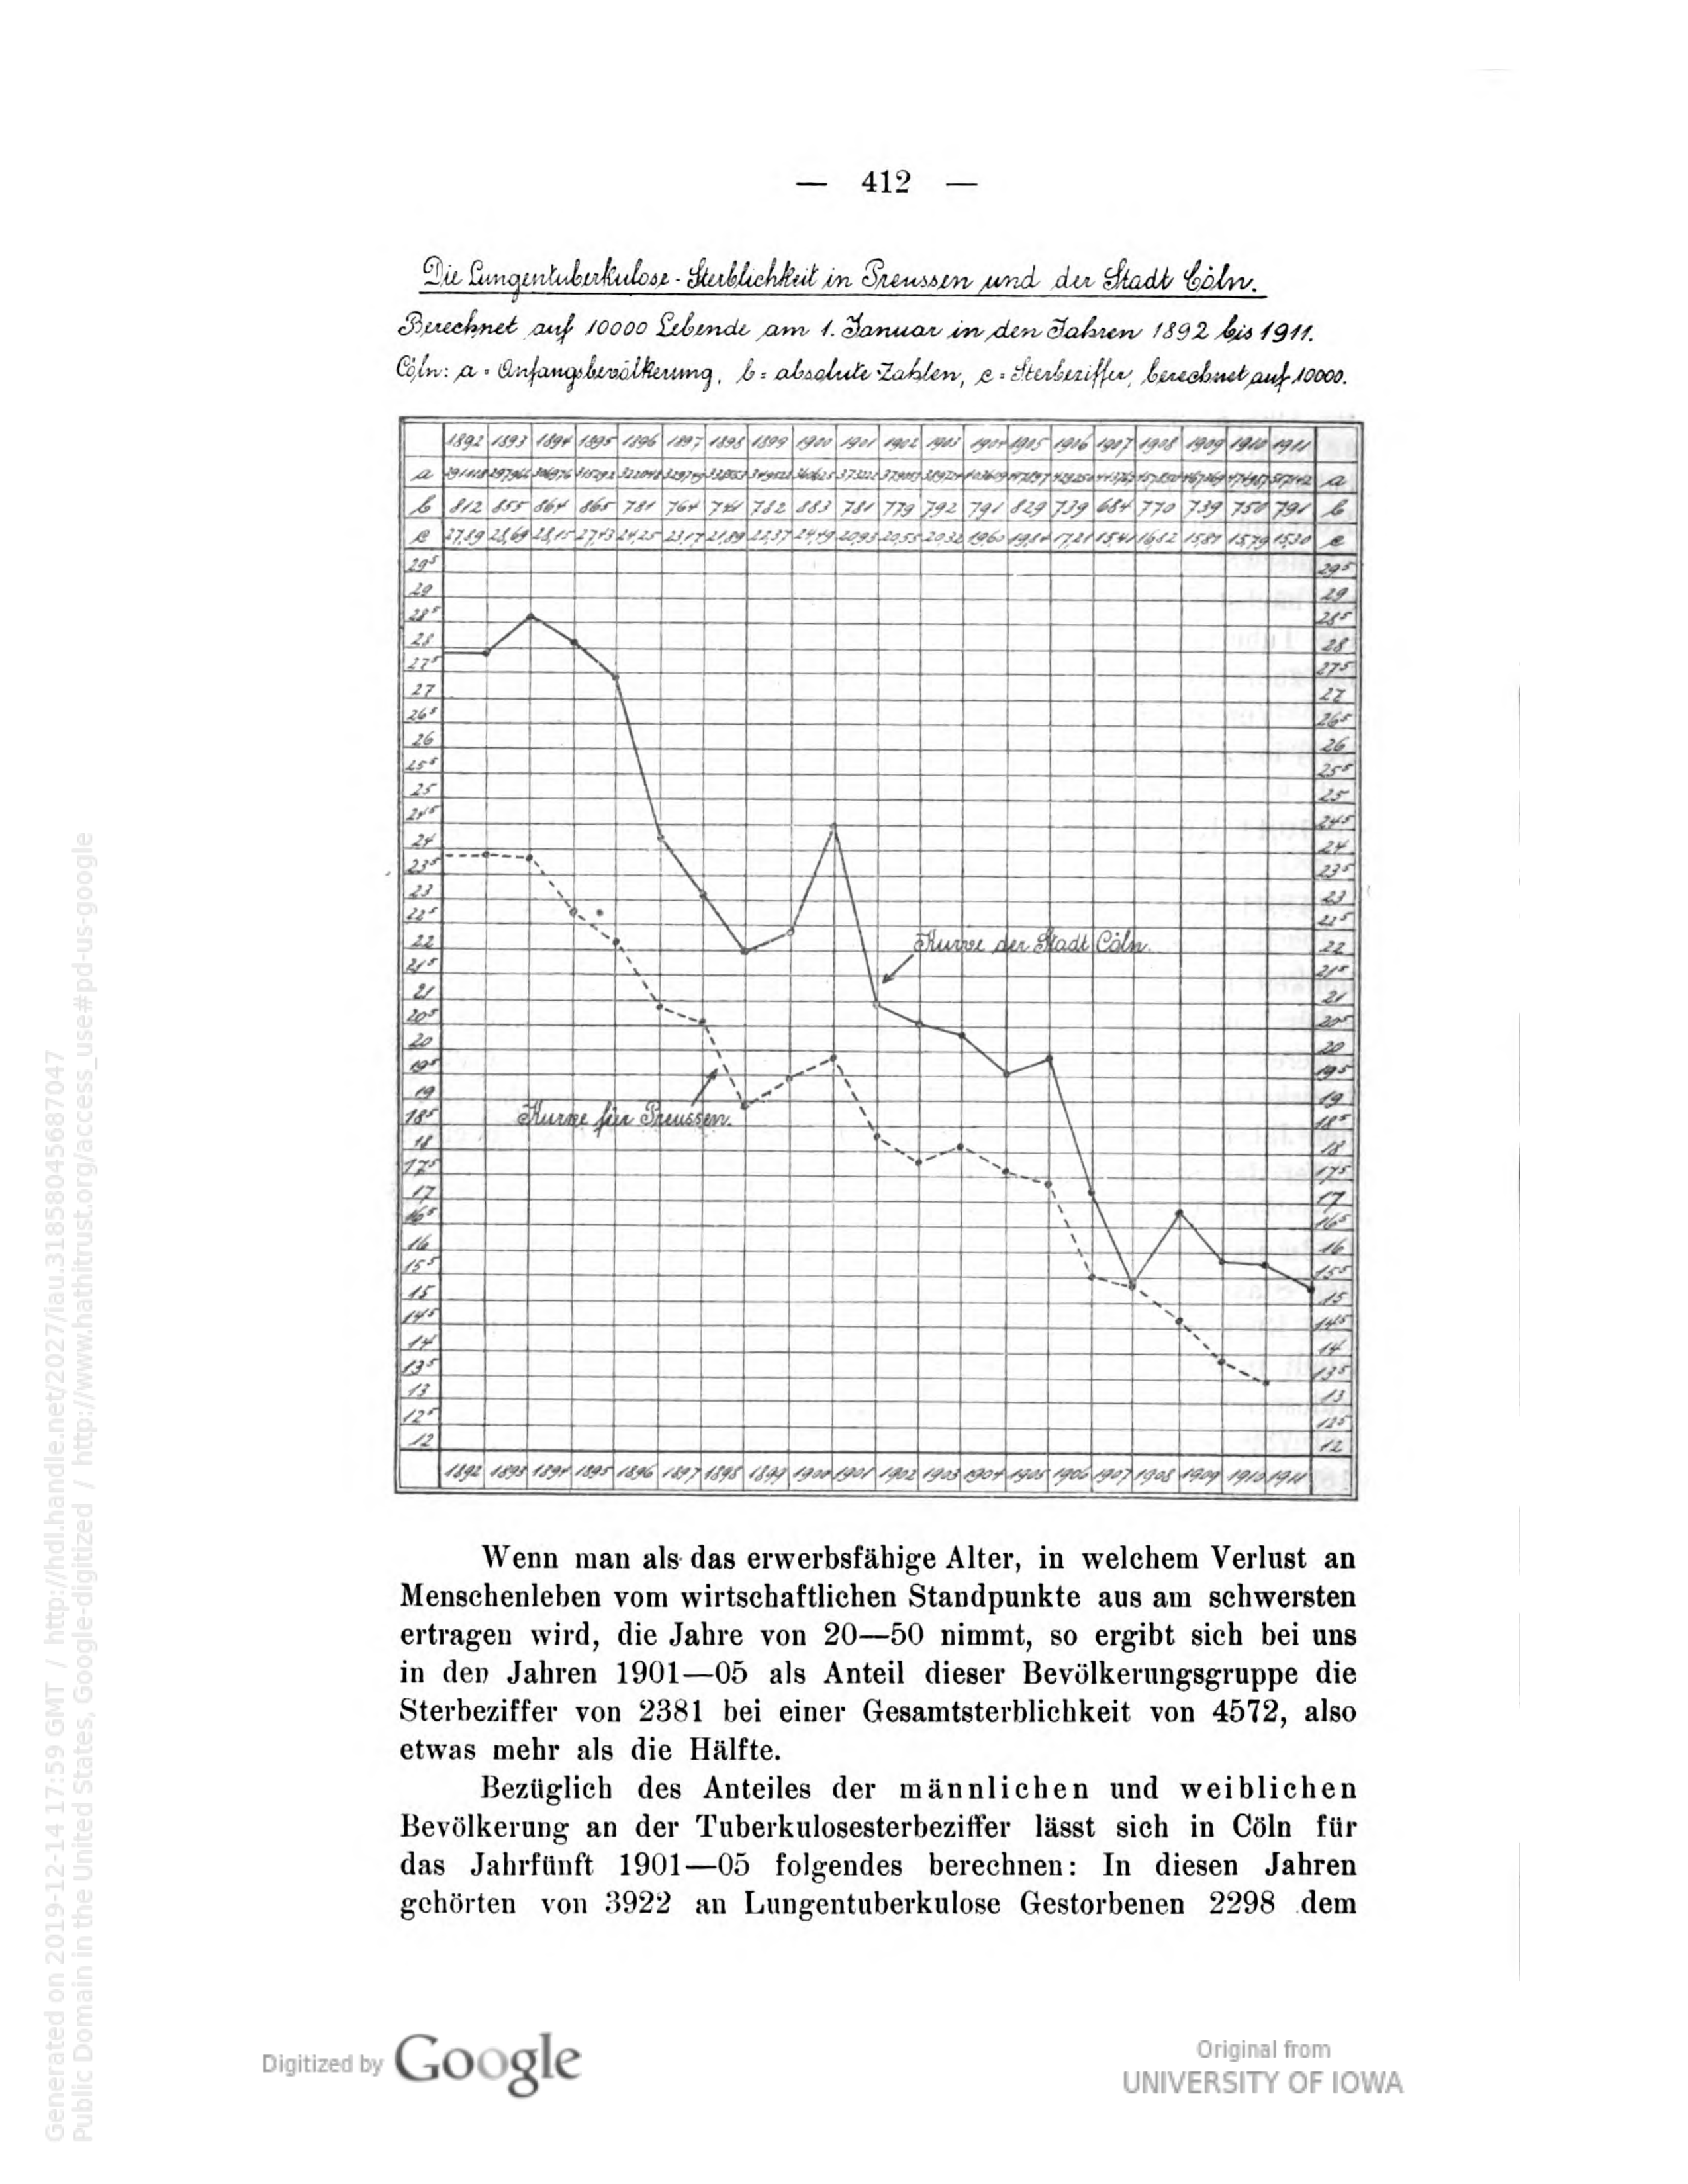 — 412 —
Die Lungentuberkulose-Sterblichkeit in Preussen und der Stadt Cöln.
Berechnet auf 10000 Lebende am 1. Januar in den Jahren 1892 bis 1911.
Cöln: a = Anfangsbevölkerung, b = absolute Zahlen, c = Sterbeziffer, berechnet auf 10000.
1892 1893 1894 1895 1896 1897 1898 1899 1900 1901 1902 1903 1904 1905 1906 1907 1908 1909 1910 1911
a a
b 812 855 864 865 781 764 741 782 883 781 779 792 791 829 739 684 770 739 750 791 b
c 27,89 28,69 28,15 27,43 24,25 23,17 21,89 22,37 24,49 20,93 20,55 20,32 19,60 19,84 17,21 15,41 16,82 15,81 15,79 15,30 c
29⁵ 29⁵
29 29
28⁵ 28⁵
28 28
27⁵ 27⁵
27 27
26⁵ 26⁵
26 26
25⁵ 25⁵
25 25
24⁵ 24⁵
24 24
23⁵ 23⁵
23 23
22⁵ 22⁵
22 Kurve der Stadt Cöln. 22
21⁵ 21⁵
21 21
20⁵ 20⁵
20 20
19⁵ 19⁵
19 19
18⁵ Kurve für Preussen. 18⁵
18 18
17⁵ 17⁵
17 17
16⁵ 16⁵
16 16
15⁵ 15⁵
15 15
14⁵ 14⁵
14 14
13⁵ 13⁵
13 13
12⁵ 12⁵
12 12
1892 1893 1894 1895 1896 1897 1898 1899 1900 1901 1902 1903 1904 1905 1906 1907 1908 1909 1910 1911
Wenn man als das erwerbsfähige Alter, in welchem Verlust an
Menschenleben vom wirtschaftlichen Standpunkte aus am schwersten
ertragen wird, die Jahre von 20—50 nimmt, so ergibt sich bei uns
in den Jahren 1901—05 als Anteil dieser Bevölkerungsgruppe die
Sterbeziffer von 2381 bei einer Gesamtsterblichkeit von 4572, also
etwas mehr als die Hälfte.
Bezüglich des Anteiles der männlichen und weiblichen
Bevölkerung an der Tuberkulosesterbeziffer lässt sich in Cöln für
das Jahrfünft 1901—05 folgendes berechnen: In diesen Jahren
gehörten von 3922 an Lungentuberkulose Gestorbenen 2298 dem
Digitized by Google
Original from
UNIVERSITY OF IOWA
Generated on 2019-12-14 17:59 GMT / http://hdl.handle.net/2027/iau.31858045687047
Public Domain in the United States, Google-digitized / http://www.hathitrust.org/access_use#pd-us-google